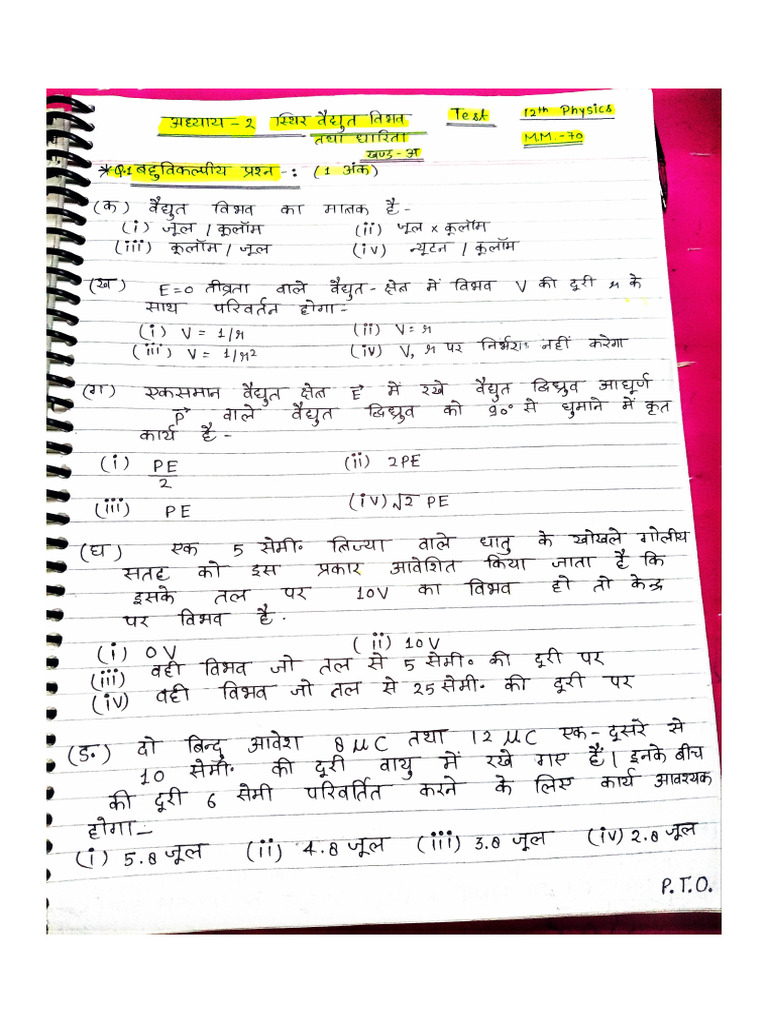 अध्याय - २ स्थिर वैद्युत विभव Test 12th Physics
तथा धारिता M.M. - 70
खण्ड - अ
* Q.1 बहुविकल्पीय प्रश्न - : (1 अंक)
(क) वैद्युत विभव का मात्रक है -
(i) जूल / कूलॉम (ii) जूल x कूलॉम
(iii) कूलॉम / जूल (iv) न्यूटन / कूलॉम
(ख) E=0 तीव्रता वाले वैद्युत - क्षेत्र में विभव V की दूरी r के
साथ परिवर्तन होगा -
(i) V = 1/r (ii) V = r
(iii) V = 1/r2 (iv) V, r पर निर्भर नहीं करेगा
(ग) एकसमान वैद्युत क्षेत्र E→ में रखे वैद्युत द्विध्रुव आघूर्ण
P→ वाले वैद्युत द्विध्रुव को 90° से घुमाने में कृत
कार्य है -
(i) PE/2 (ii) 2PE
(iii) PE (iv) √2 PE
(घ) एक 5 सेमी॰ त्रिज्या वाले धातु के खोखले गोलीय
सतह को इस प्रकार आवेशित किया जाता है कि
इसके तल पर 10V का विभव हो तो केन्द्र
पर विभव है .
(i) 0 V (ii) 10 V
(iii) वही विभव जो तल से 5 सेमी॰ की दूरी पर
(iv) वही विभव जो तल से 25 सेमी॰ की दूरी पर
(ड.) दो बिन्दु आवेश 8 μC तथा 12 μC एक - दूसरे से
10 सेमी॰ की दूरी वायु में रखे गए हैं। इनके बीच
की दूरी 6 सेमी परिवर्तित करने के लिए कार्य आवश्यक
होगा -
(i) 5.8 जूल (ii) 4.8 जूल (iii) 3.8 जूल (iv) 2.8 जूल
P.T.O.